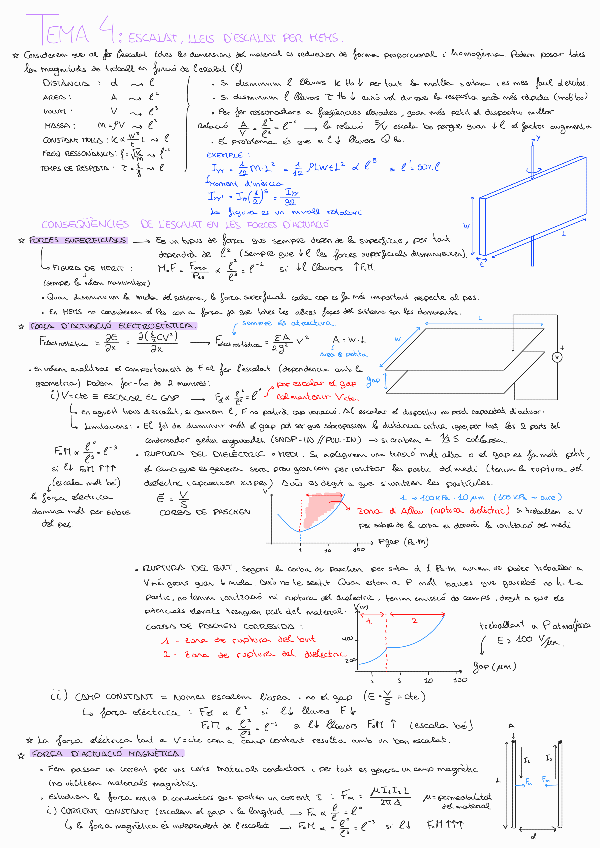 TEMA 4: ESCALAT, LLEIS D'ESCALAT PER MEMS.
☆ Considerem que al fer l'escalat totes les dimensions del material es redueixen de forma proporcional i homogènia. Podem posar totes
les magnituds de treball en funció de l'escalat (l)
DISTÀNCIA : d → l
ÀREA : A → l²
VOLUM : V → l³
MASSA : m = ρV → l³
TEMPS DE RESPOSTA :
• Si disminuïm l llavors K ↓ per tant la molla
• Si disminuïm l llavors τ ↓ això vol dir que la resposta serà més ràpida
• Per fer ressonadors a freqüències elevades, quan més petit el dispositiu millor
Relació A/V ∝ l²/l³ = l⁻¹ → la relació S/V escala bé perquè quan ↓l el factor augmenta
• El problema és que a l↓ llavors Q
EXEMPLE :
moment d'inèrcia
La figura és un mirall rotatori
W
L
t
CONSEQÜÈNCIES DE L'ESCALAT EN LES FORCES D'ACTUACIÓ
☆ FORCES SUPERFICIALS → És un tipus de força que sempre depèn de la superfície, per tant
dependrà de l² (sempre que ↓l les forces superficials disminueixen).
↳ FIGURA DE MÈRIT : M.F = Força/Pes ∝ l²/l³ = l⁻¹ si l↓ llavors ↑F.M
(sempre la volem maximitzar)
• Quan disminuïm la mida del sistema, la força superficial cada cop es fa més important respecte al pes.
• En MEMS no considerem el Pes com a força ja que totes les altres forces del sistema són les dominants.
☆ FORÇA D'ACTUACIÓ ELECTROSTÀTICA.
sempre és atractiva
A = W·L
àrea d
W
L
gap
V
• Si volem analitzar el comportament de F al fer l'escalat (dependència amb la
geometria) podem fer-ho de 2 maneres:
i) V=cte ≡ ESCALAR EL GAP → Fe ∝ l²/l² = l⁰
per escalar el gap
cte.
↳ en aquest tipus d'escalat, si canviem l, F no patirà cap variació. Al escalar el dispositiu no perd capacitat d'actuar.
↳ Limitacions: • El fet de disminuir molt el gap pot ser que sobrepassem la distància crítica i que per tant les 2 parts del
condensador quedin enganxades (SNAP-IN // PULL-IN) → si arribem a 1/3 S col·lapsa.
F.M ∝ l⁰/l³ = l⁻³
si l↓ F.M ↑↑↑
(escala molt bé)
la força elèctrica
domina molt per sobre
del pes
• RUPTURA DEL DIELÈCTRIC = MEDI. Si apliquem una tensió molt alta o el gap es fa molt petit,
el camp que es genera serà prou gran com per ionitzar les partíc. del medi (tenim la ruptura del
dielèctric i apareixen xispes). Això és degut a que s'ionitzen les partícules.
E = V/S
CORBA DE PASCHEN
V
1 10 100
P·gap
zona d'allau (ruptura dielèctric). Si treballem a V
per sobre de la corba es donarà la ionització del medi
• RUPTURA DEL BUIT. Segons la corba de Paschen per sota d'1 Pa·m aurem de poder treballar a
V més grans quan S més. Això no té sentit. Quan estem a P molt baixes que gairebé no hi ha
partíc., no tenim ionització ni ruptura del dielèctric, tenim emissió de camp, degut a que els
potencials elevats trenquen part del material.
CORBA DE PASCHEN CORREGIDA :
1 - zona de ruptura del buit
2 - zona de ruptura del dielèctric
V(V)
1
2
400
200
1 5 10 100
gap (μm)
treballant a P atmosfèrica
E > 100 V/μm
ii) CAMP CONSTANT = Només escalem l'àrea, no el gap (E = V/S = cte)
↳ força elèctrica : Fel ∝ l² si l↓ llavors F↓
F.M ∝ l²/l³ = l⁻¹ si l↓ llavors F.M ↑ (escala bé)
☆ La força elèctrica tant a V=cte com a camp constant resulta amb un bon escalat.
☆ FORÇA D'ACTUACIÓ MAGNÈTICA
• Fem passar un corrent per uns certs materials conductors i per tant es genera un camp magnètic
(no utilitzem materials magnètics.
• Estudiem la força entre 2 conductors que porten un corrent I : Fm = μ I₁ I₂ L / 2π d
μ = permeabilitat
del material
i) CORRENT CONSTANT (escalem el gap i la longitud) → Fm ∝ l/l = l⁰
↳ la força magnètica és independent de l'escalat → F.M ∝ l⁰/l³ = l⁻³ si l↓ F.M ↑↑↑
A
L
I₁
I₂
Fm
Fm
d